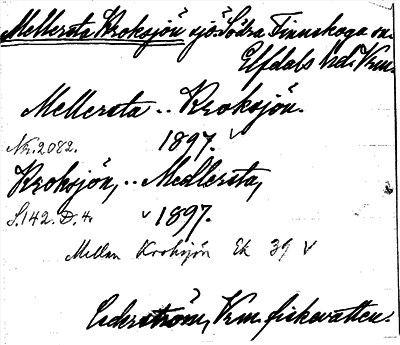 Mellersta Kroksjön sjö. Södra Finnskoga sn.
Elfdals hd. Vrm.
Mellersta .. Kroksjön.
Nr. 2082. 1897. v
Kroksjön, .. Medlersta,
S. 142. D. 4. v 1897.
Mellan Kroksjön Ek 39 v
Cederström, Vrm. fiskevatten.